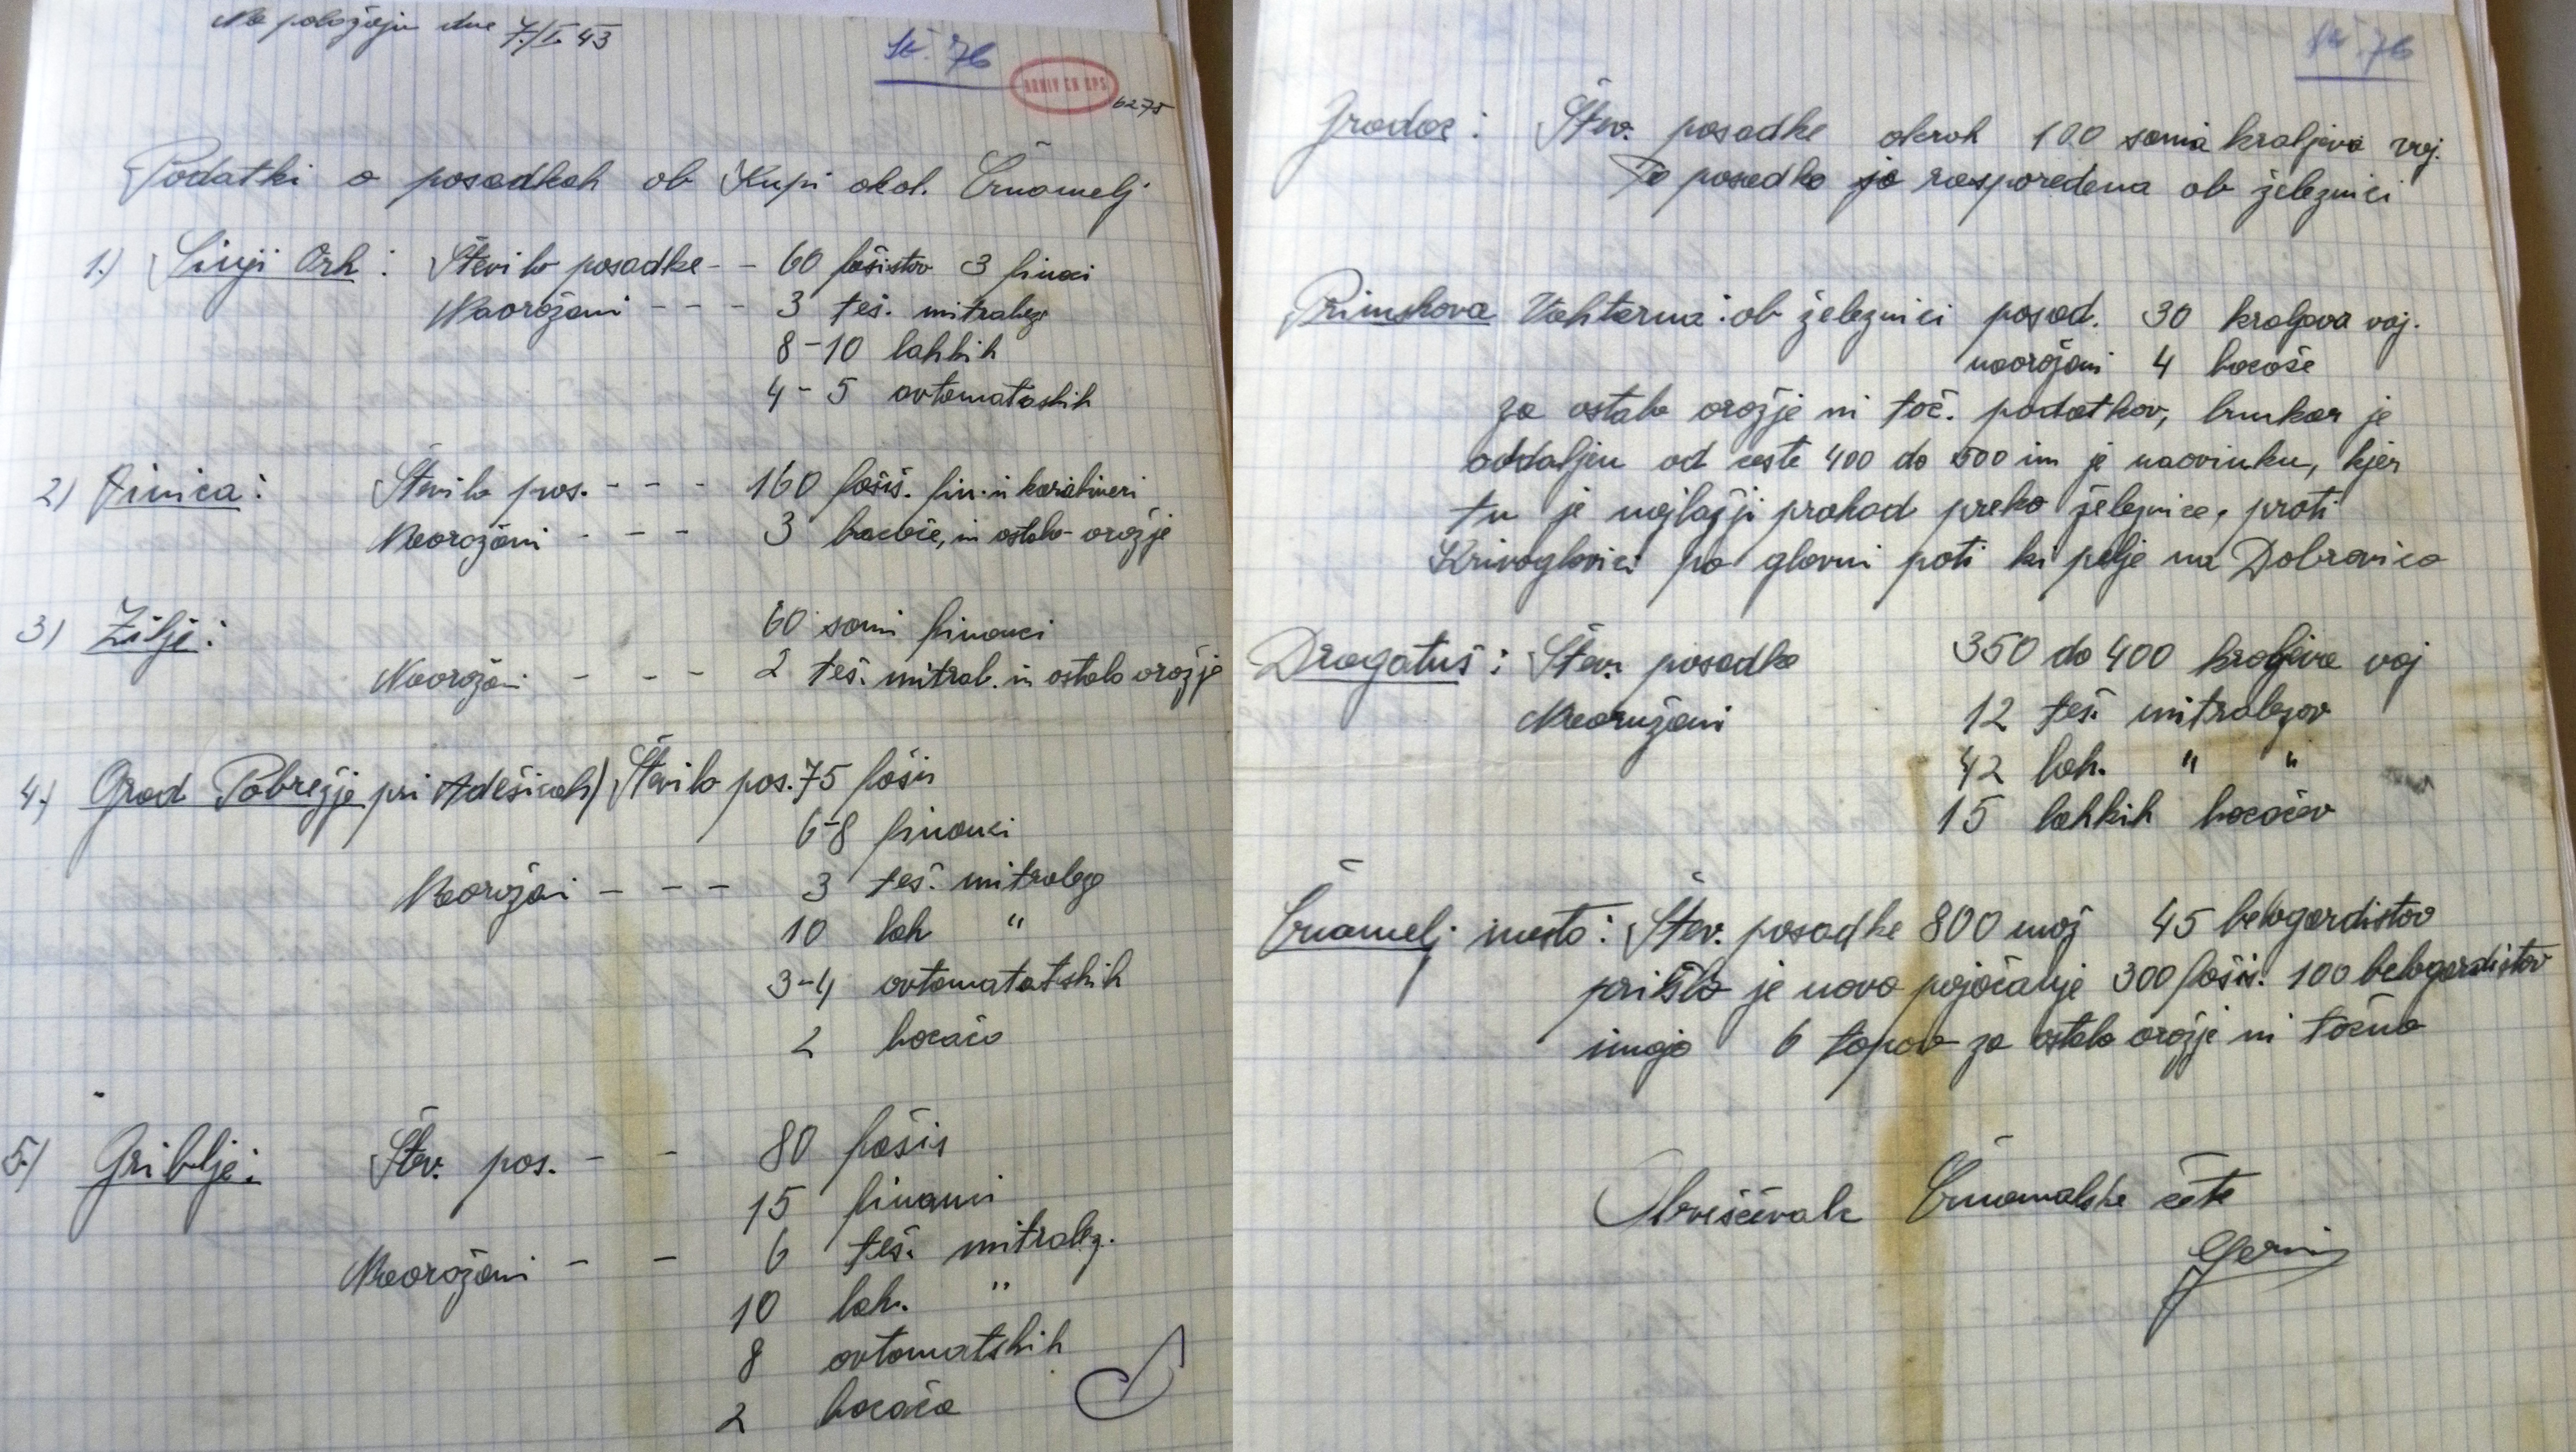 Na položaju dne 7./I. 43
št. 76
ARHIV CK KPS
6275
Podatki o posadkah ob Kupi okol. Črnomelj
1.) Sinji Vrh: Število posadke - - 60 fašistov 3 finaci
Naoroženi - - - 3 teš. mitraleze
8-10 lahkih
4-5 avtomataskih
2) Vinica: Število pos. - - - 160 fašis. fin. in karabineri
Naoroženi - - - 3 bacače, in ostalo orožje
3) Žilje: 60 sami financi
Naoroženi - - - 2 teš. mitral. in ostalo orožje
4.) Grad Pobrežje pri Adešicah) Število pos. 75 fašis
6-8 financi
Naorožni - - - 3 teš. mitraleze
10 lah "
3-4 avtomatatskih
2 bacača
5.) Griblje: Štev. pos. - - 80 fašis
15 financi
Naoroženi - - 6 teš. mitralez.
10 lah. "
8 avtomatskih
2 bacača
št. 76
Gradac: Štev. posadke okrok 100 sama kraljeva voj.
Ta posadka je rasporedena ob železnici
Primskova Vahtarna: ob železnici posad. 30 kraljeva voj.
naoroženi 4 bacače
za ostalo orožje ni toč. podatkov, bunkar je
oddaljen od ceste 400 do 500 in je naovinku, kjer
tu je najlažji prohod preko železnice, proti
Krivoglavici po glavni poti ki pelje na Dobravico
Dragatuš: Štev. posadke 350 do 400 kraljeva voj
Naoružani 12 teš. mitralezov
42 lah. " "
15 lahkih bacačev
Črnomelj mesto: Štev. posadke 800 mož 45 belogardistov
prišlo je novo pojočanje 300 fašis. 100 belogardistov
imajo 6 topov za ostalo orožje ni točno
Obveščevalc Črnomalske čete